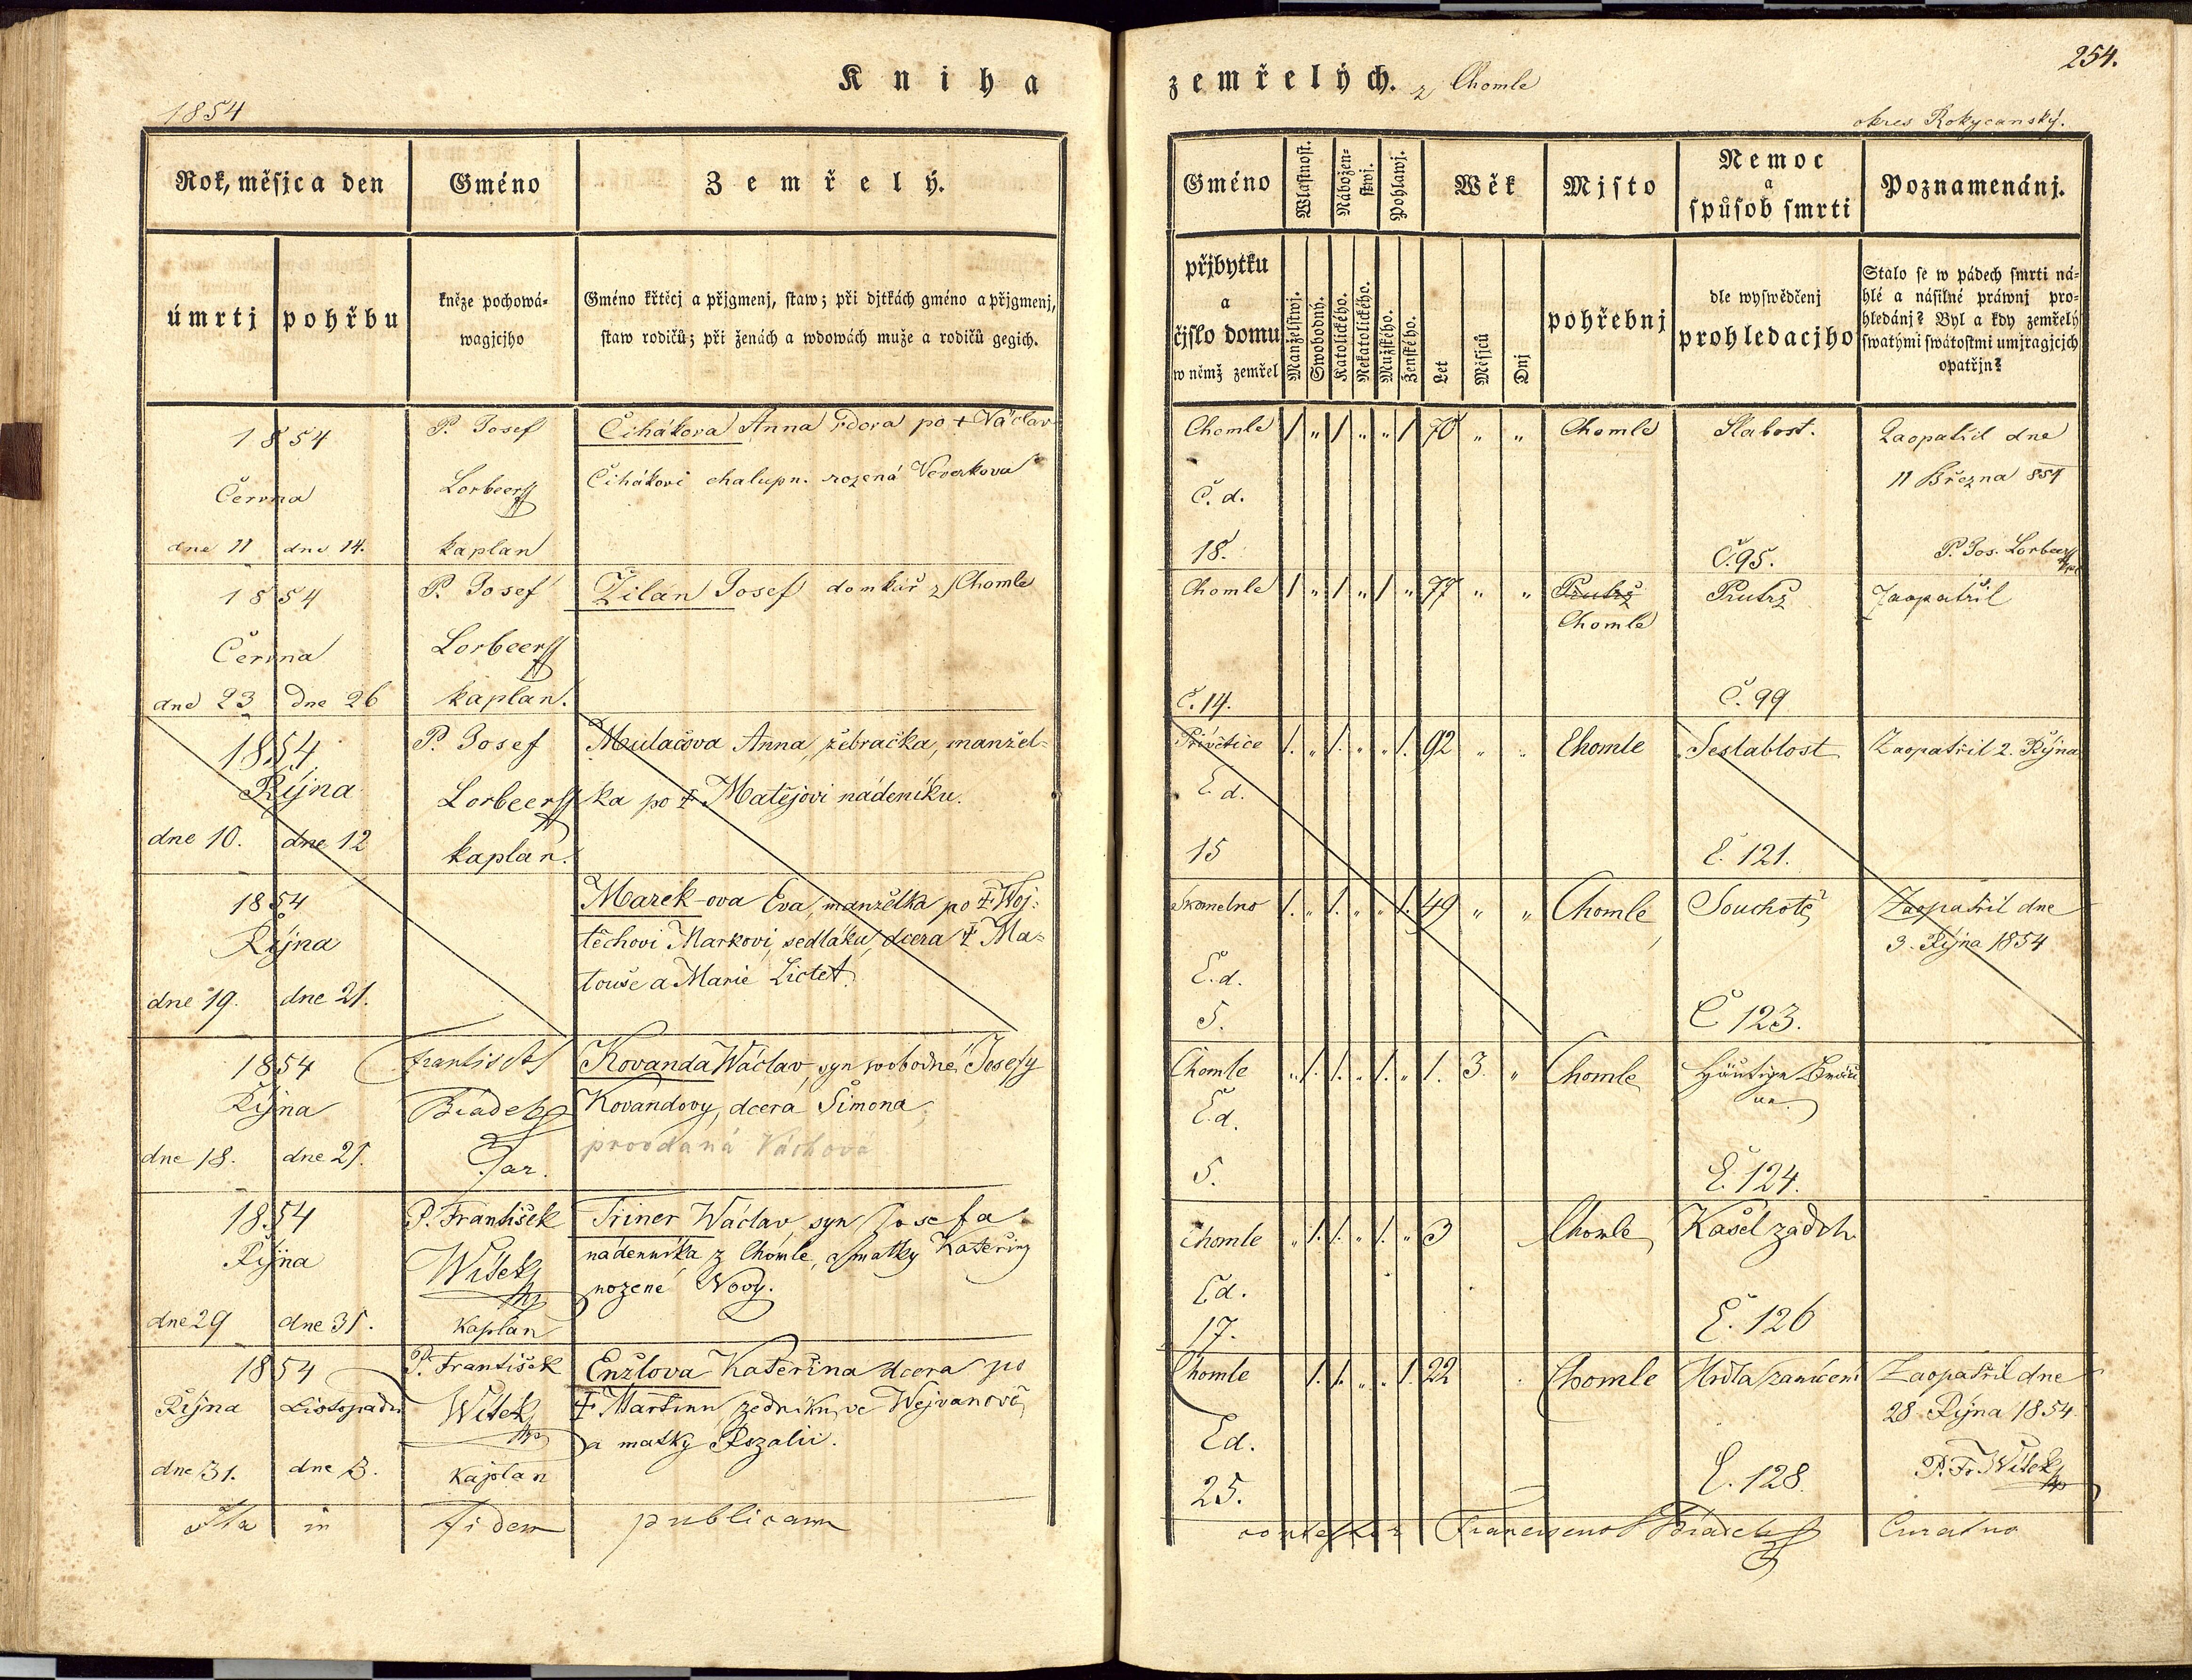 Kniha
zemřelých. z Chomle
254.
1854
okres Rokycanský.
Rok, měsjc a den
Gméno
Zemřelý.
úmrtj
pohřbu
kněze pochowá-
wagjcjho
Gméno křtěcj a přjgmenj, staw; při djtkách gméno a přjgmenj,
staw rodičů; při ženách a wdowách muže a rodičů gegich.
Gméno
Wlastnost.
Nábožen-
stwj.
Pohlawj.
Wěk
Mjsto
Nemoc
a
spůsob smrti
Poznamenánj.
přjbytku
a
čjslo domu
w němž zemřel
Manželstwj.
Swobodný.
Katolického.
Nekatolického.
Mužského.
Ženského.
Let
Měsjců
Dnj
pohřebnj
dle wyswědčenj
prohledacjho
Stalo se w pádech smrti ná-
hlé a násilné práwnj pro-
hledánj? Byl a kdy zemřelý
swatými swátostmi umjragjcjch
opatřjn?
1854
Června
dne 11 dne 14.
P. Josef
Lorbeer
kaplan
Čihákova Anna vdova po + Václav
Čihákovi chalupn. rozená Veverkova
Chomle 1 „ 1 „ „ 1 70 „ „ Chomle Slabost. Zaopatřil dne
11 Března 854
Č. d.
18. Č. 95. P. Jos. Lorbeer
1854
Června
dne 23 dne 26
P. Josef
Lorbeer
kaplan.
Žilán Josef domkář z Chomle
Chomle 1 „ 1 „ 1 „ 77 „ „ Prutrž Prutrž Zaopatřil
Chomle
Č. 14. Č. 99
1854
Října
dne 10. dne 12
P. Josef
Lorbeer
kaplan.
Mulačova Anna, žebračka, manžel-
ka po † Matějovi nádeníku.
Přívětice 1. „ 1. „ „ 1. 92 „ „ Chomle Seslablost Zaopatřil 2. Října
Č. d.
15 Č. 121.
1854
Října
dne 19. dne 21.
Marek-ova Eva, manželka po † Woj-
těchovi Markovi, sedláku, dcera † Ma-
touše a Marie
Skomelno 1. „ 1. „ „ 1. 49 „ „ Chomle Souchotě Zaopatřil dne
3. Října 1854
Č. d.
5. Č 123.
1854
Října
dne 18. dne 21.
Frantisek
Biadek
Far.
Kovanda Wáclav, syn svobodné Josefy
Kovandovy, dcera Šimona
provdaná Váchová
Chomle „ 1. 1. „ 1. „ 1. 3. „ Chomle Häutige Bräu
ne.
Č. d.
5. Č. 124.
1854
Října
dne 29 dne 31.
P. František
Witek
Kaplan
Triner Wáclav, syn Josefa
nádenníka z Chomle, a matky Kateřiny
rozené Nový.
Chomle „ 1. 1. „ 1. „ 3 Chomle Kašel zádch.
Čd.
17. Č. 126
1854
Října Listopadu
dne 31. dne 3.
P. František
Witek
Kaplan
Enžlova Kateřina dcera po
† Martinu zedníku ve Wejvanově
a matky Rozalii.
Chomle 1. 1. „ „ 1. 22 Chomle Hrdla zanícení Zaopatřil dne
28 Října 1854
Čd.
25. Č. 128. P. Fr. Witek
Ita in fidem publicam
contestor Franciscus Biadek Curatus